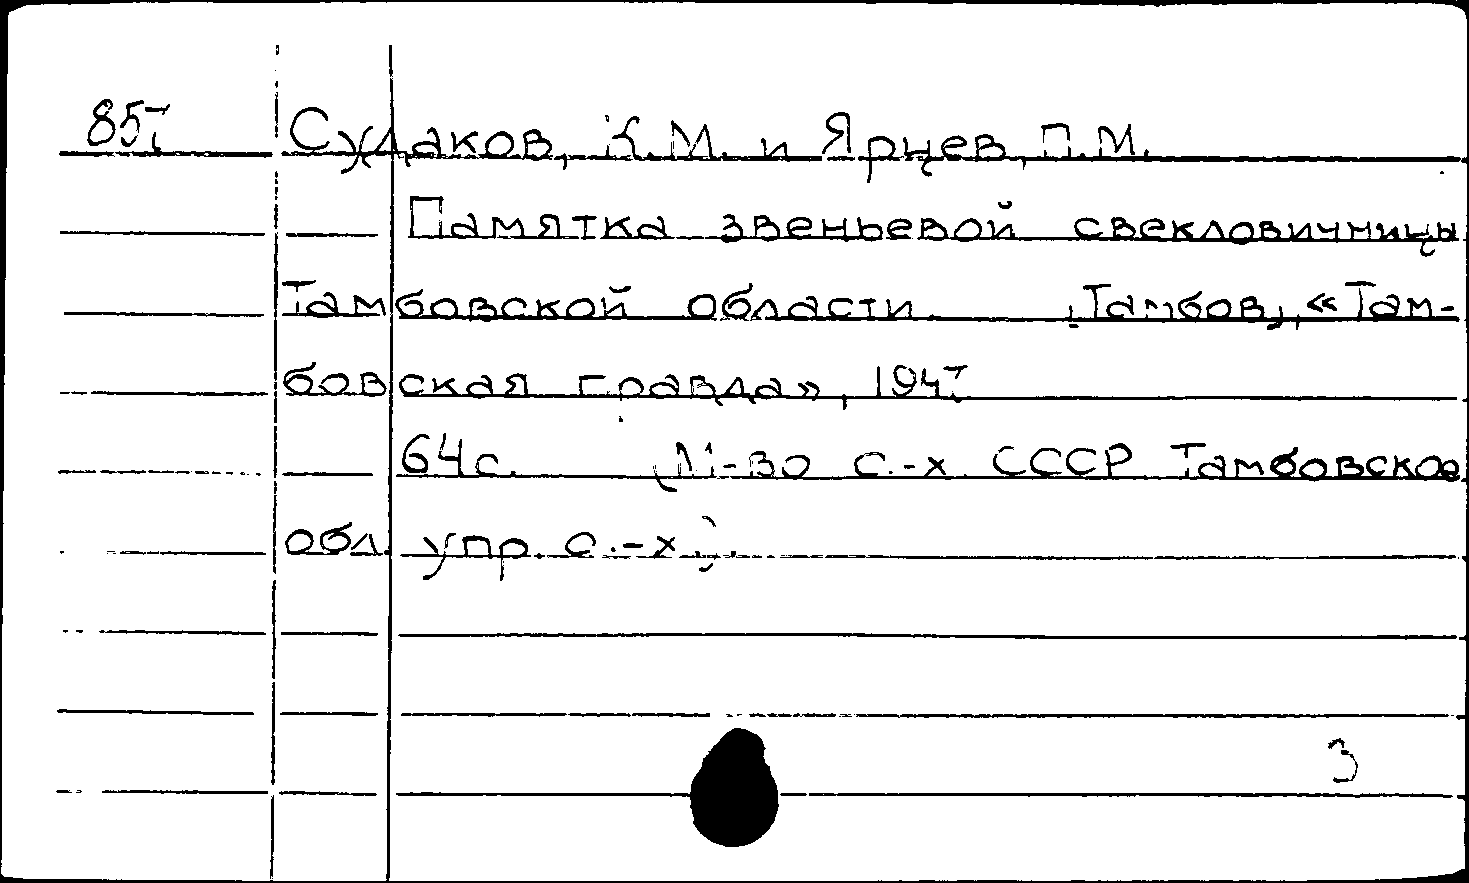 857 Судаков, К.М. и Ярцев, П.М.
Памятка звеньевой свекловичницы
Тамбовской области. [Тамбов], «Там-
бовская правда», 1947
64 с. (М-во с.-х. СССР Тамбовское
обл. упр. с.-х.).
3